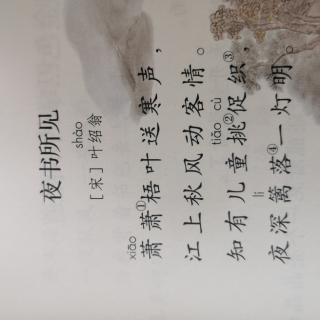 夜书所见
shào
［宋］叶绍翁
xiāo
萧萧①梧叶送寒声，
江上秋风动客情。
tiǎo cù
知有儿童挑②促织③，
lí
夜深篱落④一灯明。